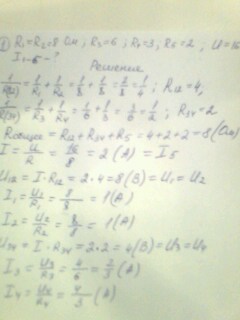 ① R₁=R₂=8 Ом; R₃=6; R₄=3; R₅=2, U=16
I₁₋₅-?
Решение
1/R₁₂=1/R₁+1/R₂=1/8+1/8=2/8=1/4; Rа=4,
1/R₃₄=1/R₃+1/R₄=1/6+1/3=3/6=1/2; R₃₄=2
Rобщее=Rа+R₃₄+R₅=4+2+2=8(Ом)
I=U/R=16/8=2(А)=I₅
Uа=I·Rа=2·4=8(В)=U₁=U₂
I₁=U₁/R₁=8/8=1(А)
I₂=U₂/R₂=8/8=1(А)
U₃₄=I·R₃₄=2·2=4(В)=U₃=U₄
I₃=U₃/R₃=4/6=2/3(А)
I₄=U₄/R₄=4/3(А)